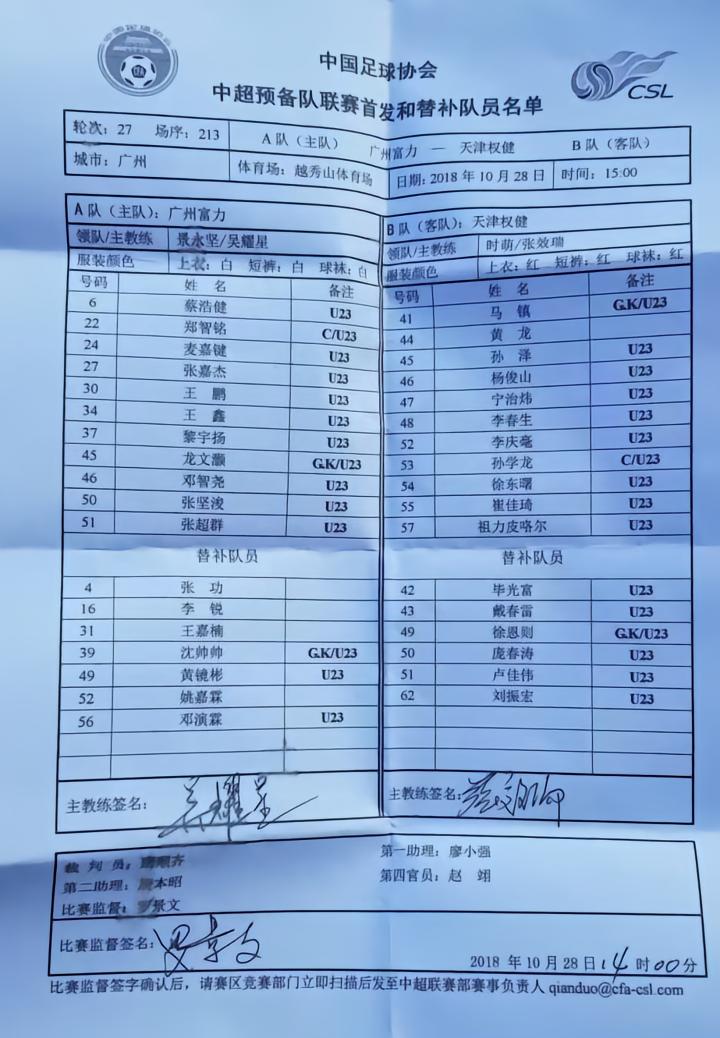 中国足球协会
CSL
中超预备队联赛首发和替补队员名单
轮次：27 场序：213 A 队（主队） 广州富力 — 天津权健 B 队（客队）
城市：广州 体育场：越秀山体育场 日期：2018 年 10 月 28 日 时间：15:00
A 队（主队）：广州富力
领队/主教练 景永坚/吴耀星
服装颜色 上衣：白 短裤：白 球袜：白
号码 姓 名 备注
6 蔡浩健 U23
22 郑智铭 C/U23
24 麦嘉键 U23
27 张嘉杰 U23
30 王 鹏 U23
34 王 鑫 U23
37 黎宇扬 U23
45 龙文灏 G.K/U23
46 邓智尧 U23
50 张坚浚 U23
51 张超群 U23
替补队员
4 张 功
16 李 锐
31 王嘉楠
39 沈帅帅 G.K/U23
49 黄镜彬 U23
52 姚嘉霖
56 邓演霖 U23
主教练签名：吴耀星
B 队（客队）：天津权健
领队/主教练 时萌/张效瑞
服装颜色 上衣：红 短裤：红 球袜：红
号码 姓 名 备注
41 马 镇 G.K/U23
44 黄 龙
45 孙 泽 U23
46 杨俊山 U23
47 宁治炜 U23
48 李春生 U23
52 李庆毫 U23
53 孙学龙 C/U23
54 徐东曙 U23
55 崔佳琦 U23
57 祖力皮喀尔 U23
替补队员
42 毕光富 U23
43 戴春雷 U23
49 徐恩则 G.K/U23
50 庞春涛 U23
51 卢佳伟 U23
62 刘振宏 U23
主教练签名：
裁 判 员： 齐 第一助理：廖小强
第二助理： 本昭 第四官员：赵 翊
比赛监督：罗景文
比赛监督签名：罗景文
2018 年 10 月 28 日 14 时 00 分
比赛监督签字确认后，请赛区竞赛部门立即扫描后发至中超联赛部赛事负责人 qianduo@cfa-csl.com